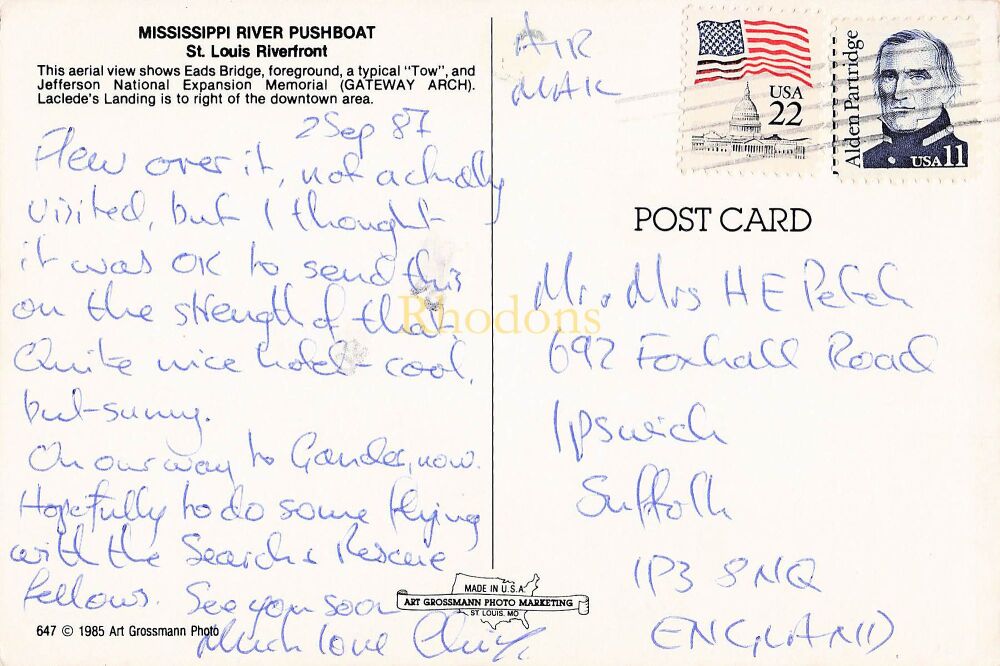 MISSISSIPPI RIVER PUSHBOAT
St. Louis Riverfront
This aerial view shows Eads Bridge, foreground, a typical "Tow", and
Jefferson National Expansion Memorial (GATEWAY ARCH).
Laclede's Landing is to right of the downtown area.
2 Sep 87
Flew over it, not actually
visited, but I thought
it was OK to send this
on the strength of that.
Quite nice hotel - cool,
but sunny.
On our way to Gander, now.
Hopefully to do some flying
with the Search & Rescue
fellows. See you soon
Much love
647 © 1985 Art Grossmann Photo
MADE IN U.S.A.
ART GROSSMANN PHOTO MARKETING
ST. LOUIS, MO
AIR
MAIL
USA
22
Alden Partridge
USA 11
POST CARD
Rhodons
Mr & Mrs H E Petch
692 Foxhall Road
Ipswich
Suffolk
IP3 8NQ
ENGLAND